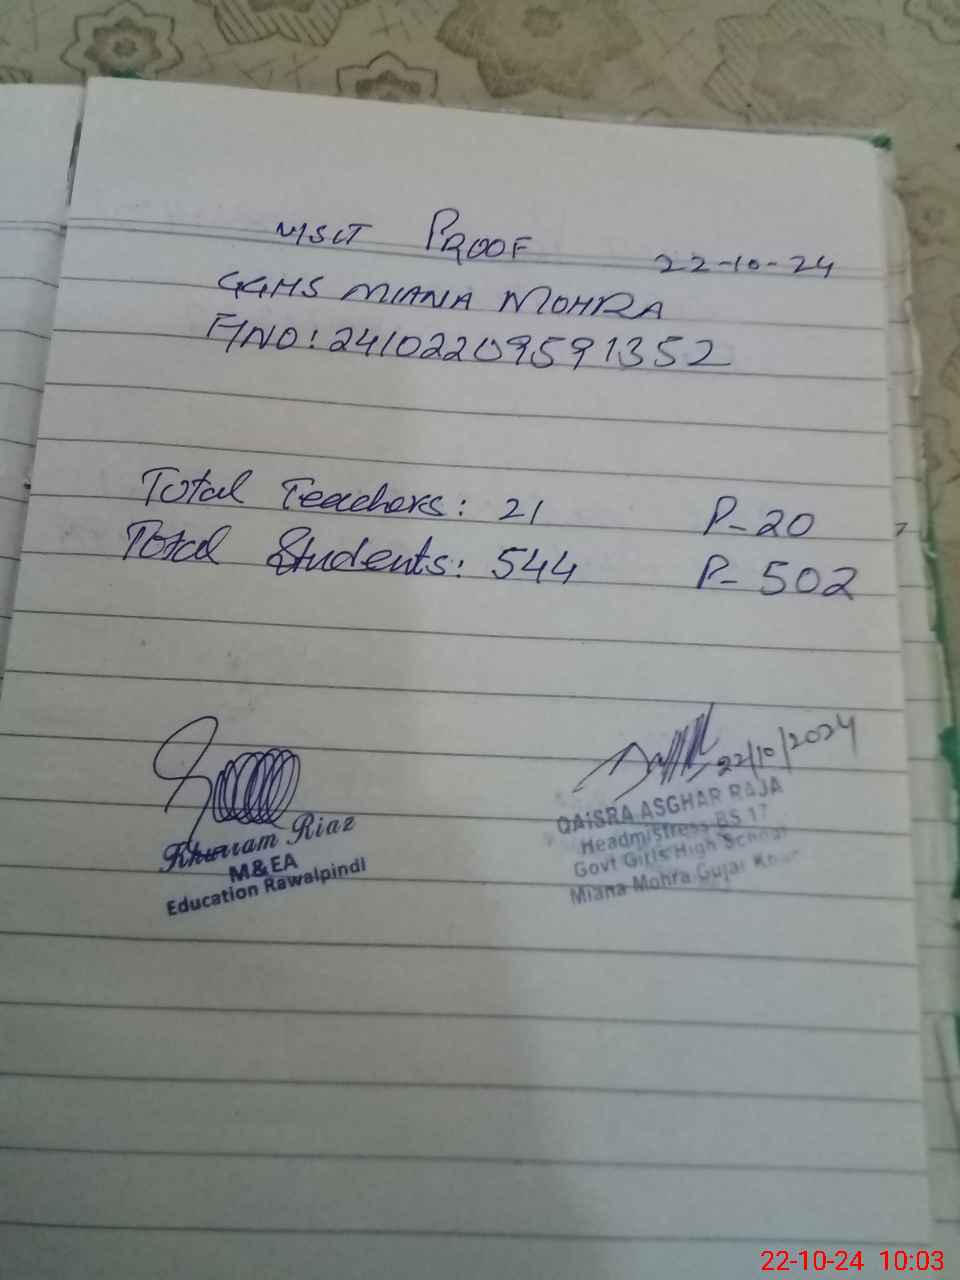 VISIT PROOF 22-10-24
GGHS MIANA MOHRA
A/NO: 24102209591352
Total Teachers: 21 P-20
Total Students: 544 P-502
22/10/2024
Khurram Riaz
M&EA
Education Rawalpindi
QAISRA ASGHAR RAJA
Headmistress BS 17
Govt Girls High School
Miana Mohra Gujar
22-10-24 10:03